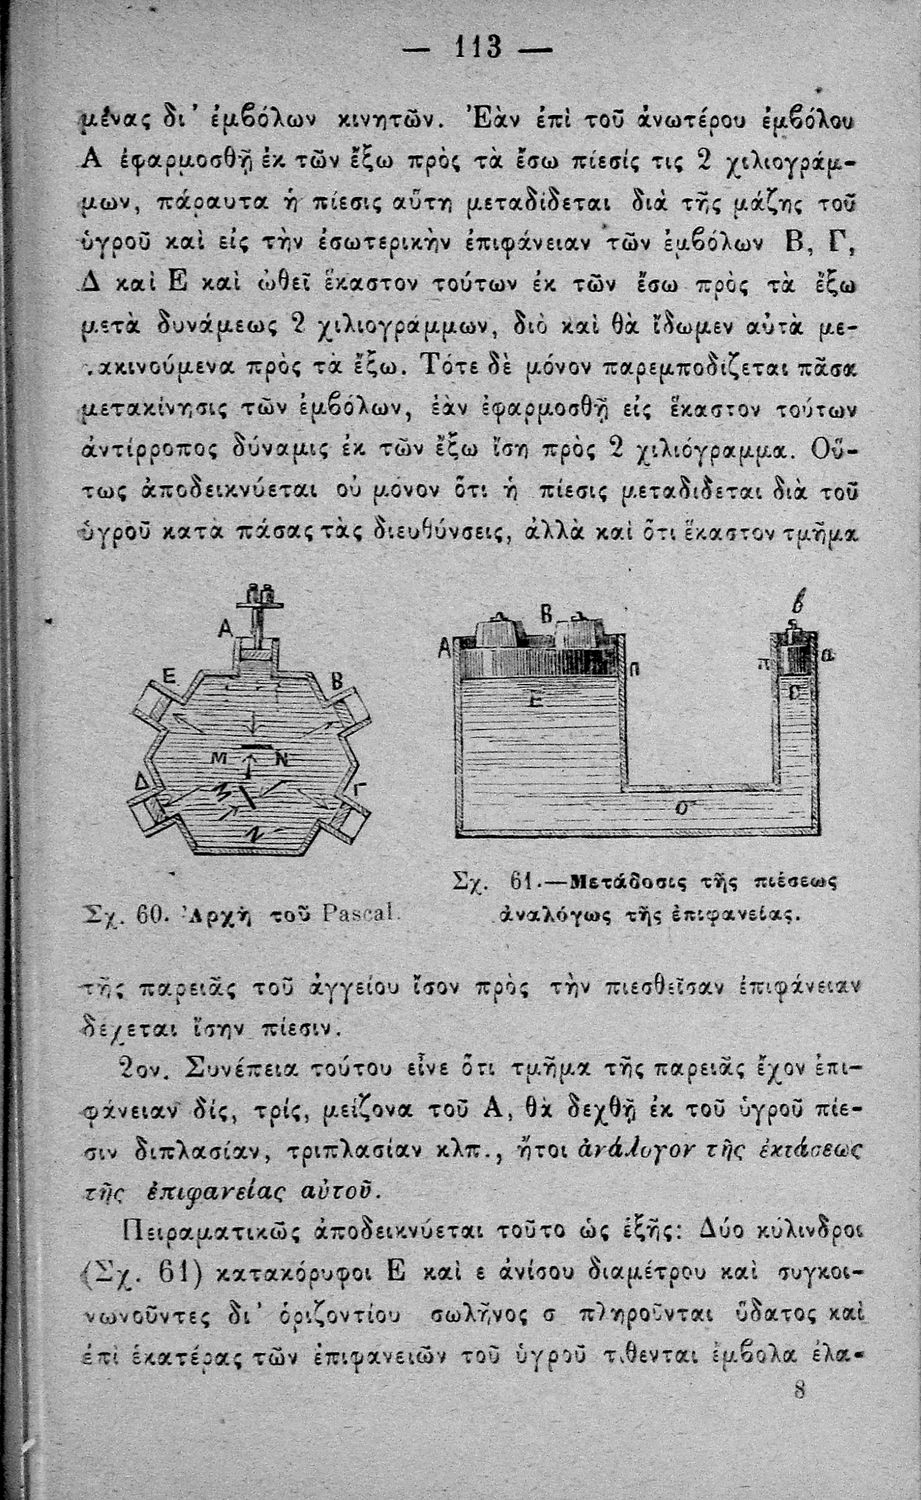 — 113 —
μένας δι' ἐμβόλων κινητῶν. Ἐὰν ἐπὶ τοῦ ἀνωτέρου ἐμβόλου
Α ἐφαρμοσθῇ ἐκ τῶν ἔξω πρὸς τὰ ἔσω πίεσίς τις 2 χιλιογράμ-
μων, πάραυτα ἡ πίεσις αὕτη μεταδίδεται διὰ τῆς μάζης τοῦ
ὑγροῦ καὶ εἰς τὴν ἐσωτερικὴν ἐπιφάνειαν τῶν ἐμβόλων Β, Γ,
Δ καὶ Ε καὶ ὠθεῖ ἕκαστον τούτων ἐκ τῶν ἔσω πρὸς τὰ ἔξω
μετὰ δυνάμεως 2 χιλιογράμμων, διὸ καὶ θὰ ἴδωμεν αὐτὰ με-
τακινούμενα πρὸς τὰ ἔξω. Τότε δὲ μόνον παρεμποδίζεται πᾶσα
μετακίνησις τῶν ἐμβόλων, ἐὰν ἐφαρμοσθῇ εἰς ἕκαστον τούτων
ἀντίρροπος δύναμις ἐκ τῶν ἔξω ἴση πρὸς 2 χιλιόγραμμα. Οὕ-
τως ἀποδεικνύεται οὐ μόνον ὅτι ἡ πίεσις μεταδίδεται διὰ τοῦ
ὑγροῦ κατὰ πάσας τὰς διευθύνσεις, ἀλλὰ καὶ ὅτι ἕκαστον τμῆμα
Α
Ε
Β
Μ Ν
Δ
Μ
Γ
Ν
Β
β
Α
Π
π
α
Ε
Ο
Σχ. 60. Ἀρχὴ τοῦ Pascal.
Σχ. 61.—Μετάδοσις τῆς πιέσεως
ἀναλόγως τῆς ἐπιφανείας.
τῆς παρειᾶς τοῦ ἀγγείου ἴσον πρὸς τὴν πιεσθεῖσαν ἐπιφάνειαν
δέχεται ἴσην πίεσιν.
2ον. Συνέπεια τούτου εἶνε ὅτι τμῆμα τῆς παρειᾶς ἔχον ἐπι-
φάνειαν δίς, τρίς, μείζονα τοῦ Α, θὰ δεχθῇ ἐκ τοῦ ὑγροῦ πίε-
σιν διπλασίαν, τριπλασίαν κλπ., ἤτοι ἀνάλογον τῆς ἐκτάσεως
τῆς ἐπιφανείας αὐτοῦ.
Πειραματικῶς ἀποδεικνύεται τοῦτο ὡς ἑξῆς: Δύο κύλινδροι
(Σχ. 61) κατακόρυφοι Ε καὶ ε ἀνίσου διαμέτρου καὶ συγκοι-
νωνοῦντες δι' ὁριζοντίου σωλῆνος σ πληροῦνται ὕδατος καὶ
ἐπὶ ἑκατέρας τῶν ἐπιφανειῶν τοῦ ὑγροῦ τίθενται ἔμβολα ἐλα-
8